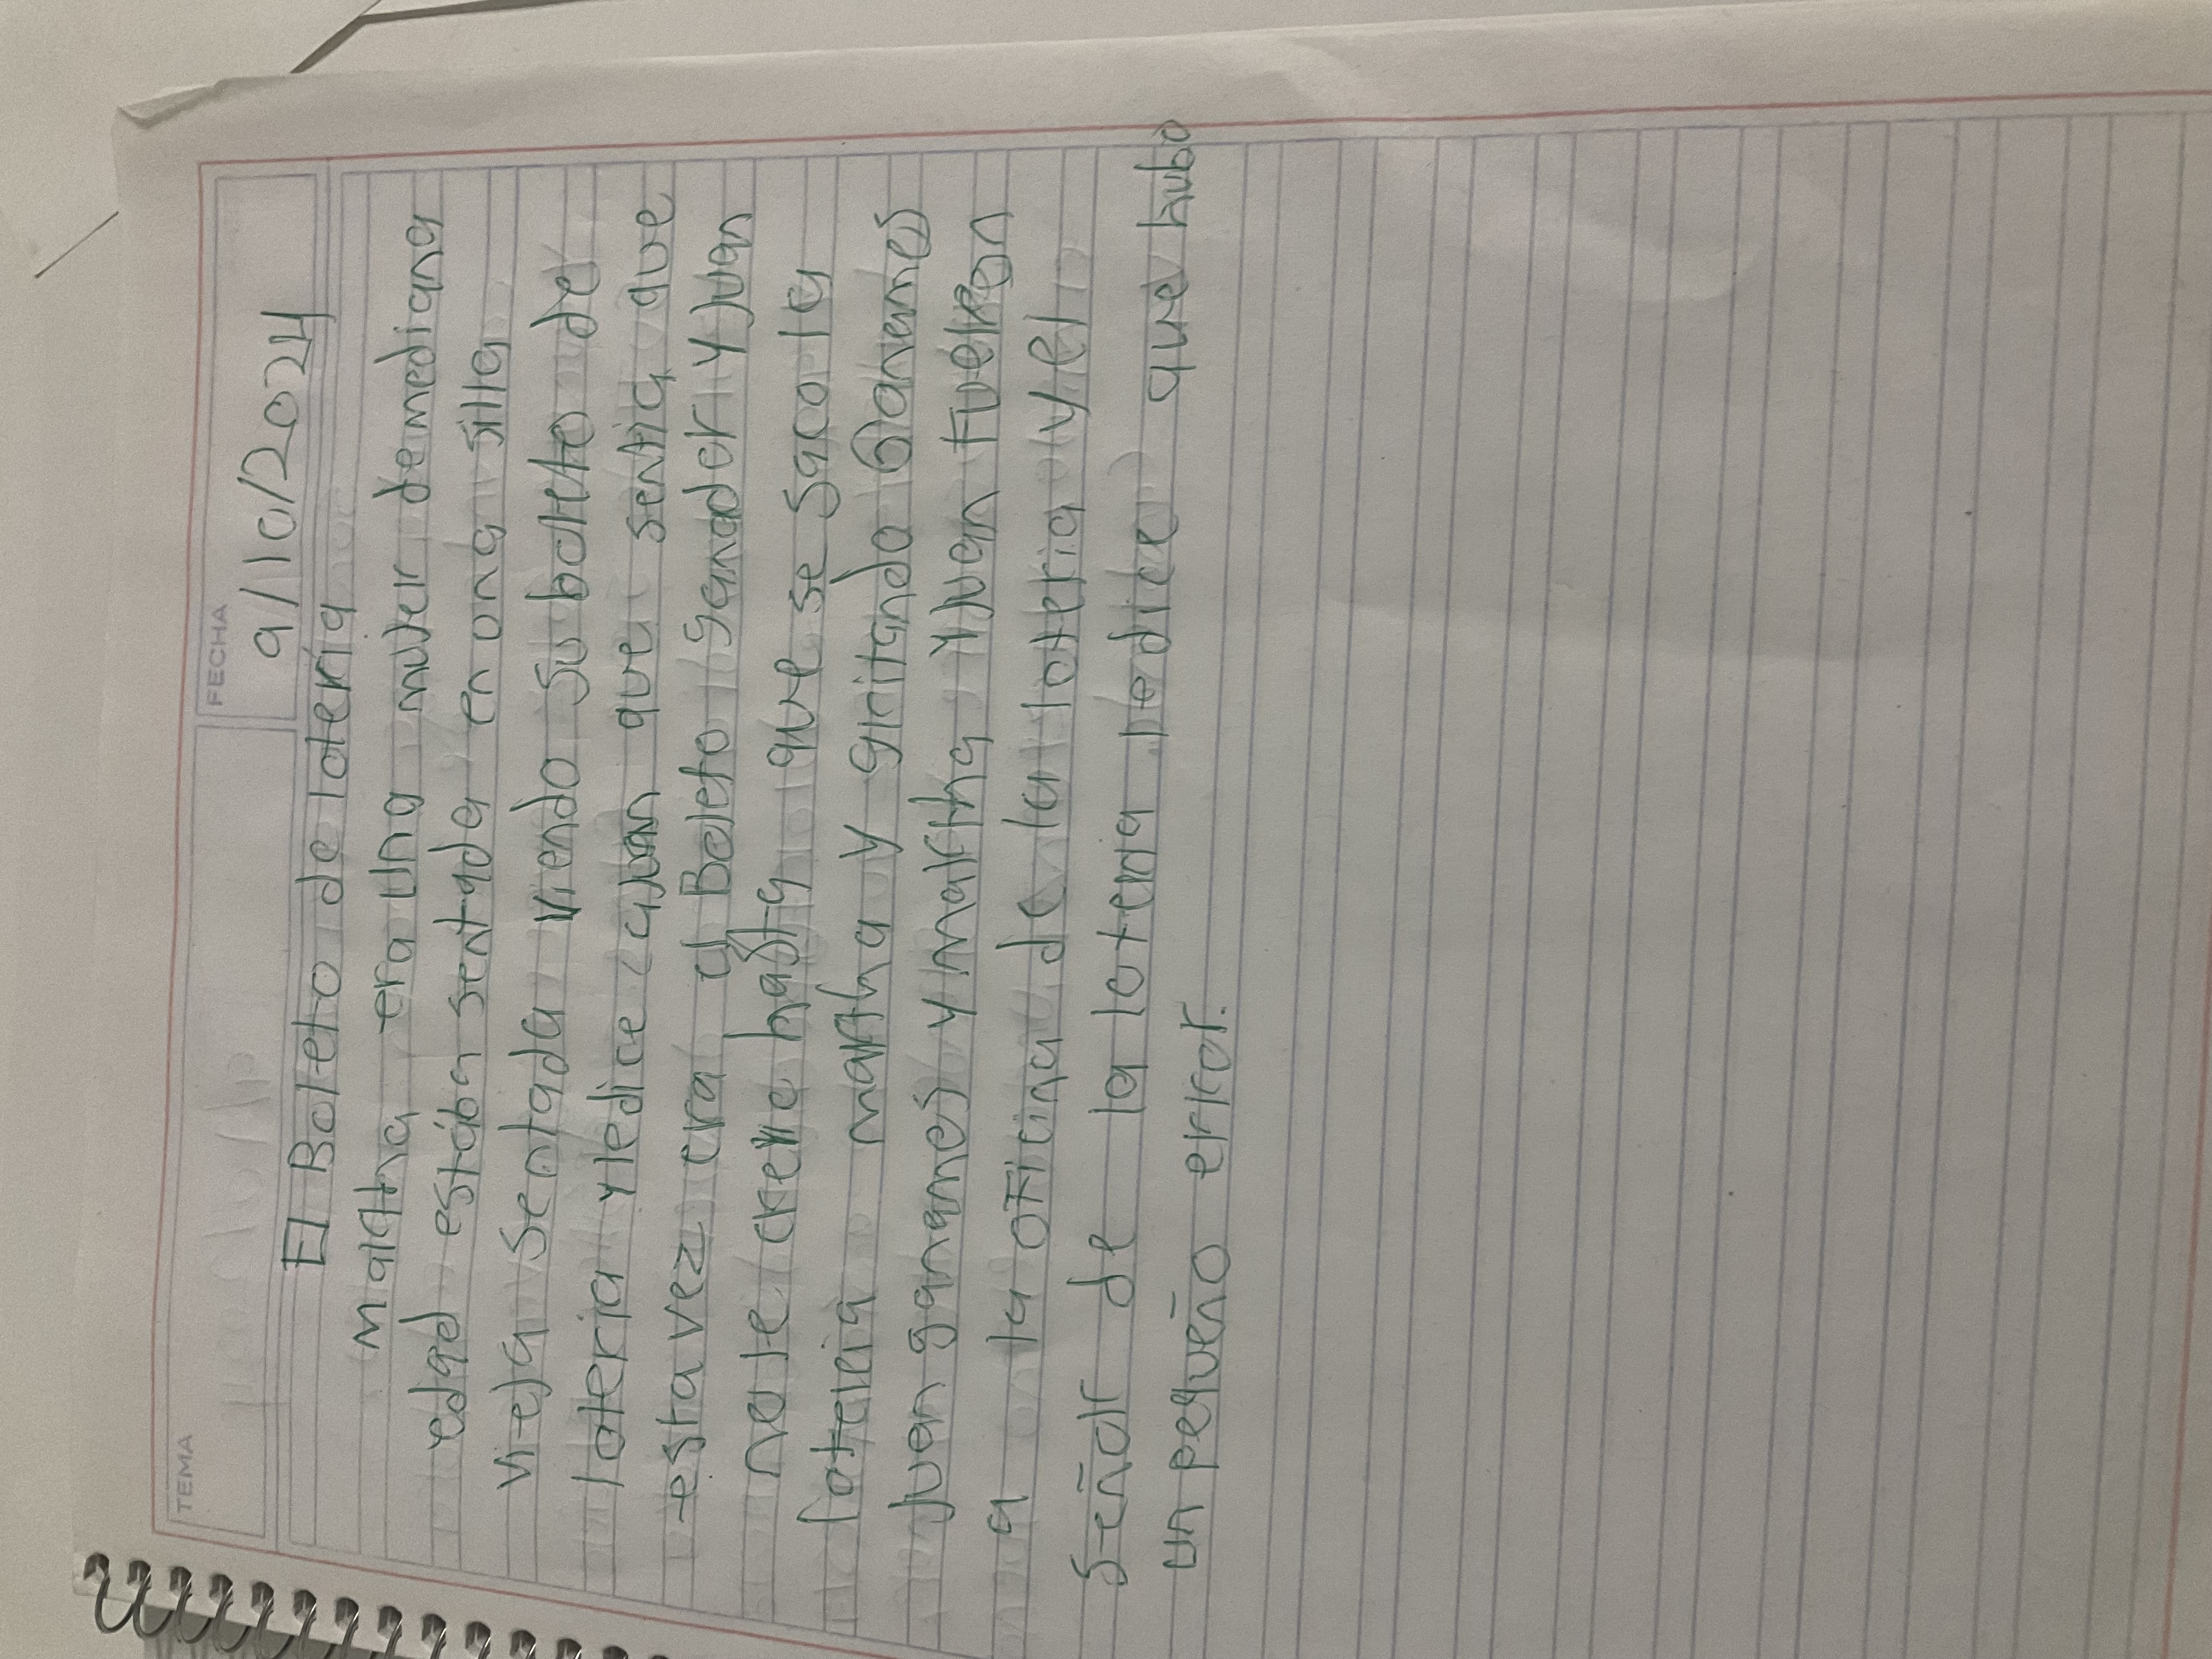 TEMA
FECHA
9/10/2024
El Boleto de lotería
martha era una mujer demediana
edad estaba sentada en ona silla
vieja sentada viendo su boleto de
loteria yledice ajuan que sentia que
esta vez era el Boleto ganador y juan
nose creria hasta que se saco la
loteria martha y gritando Ganamos
Juan ganamos y martha y Juan Fueron
a la oficina de la loteria y el
señor de la loteria ledice que hubo
un pequeño error.